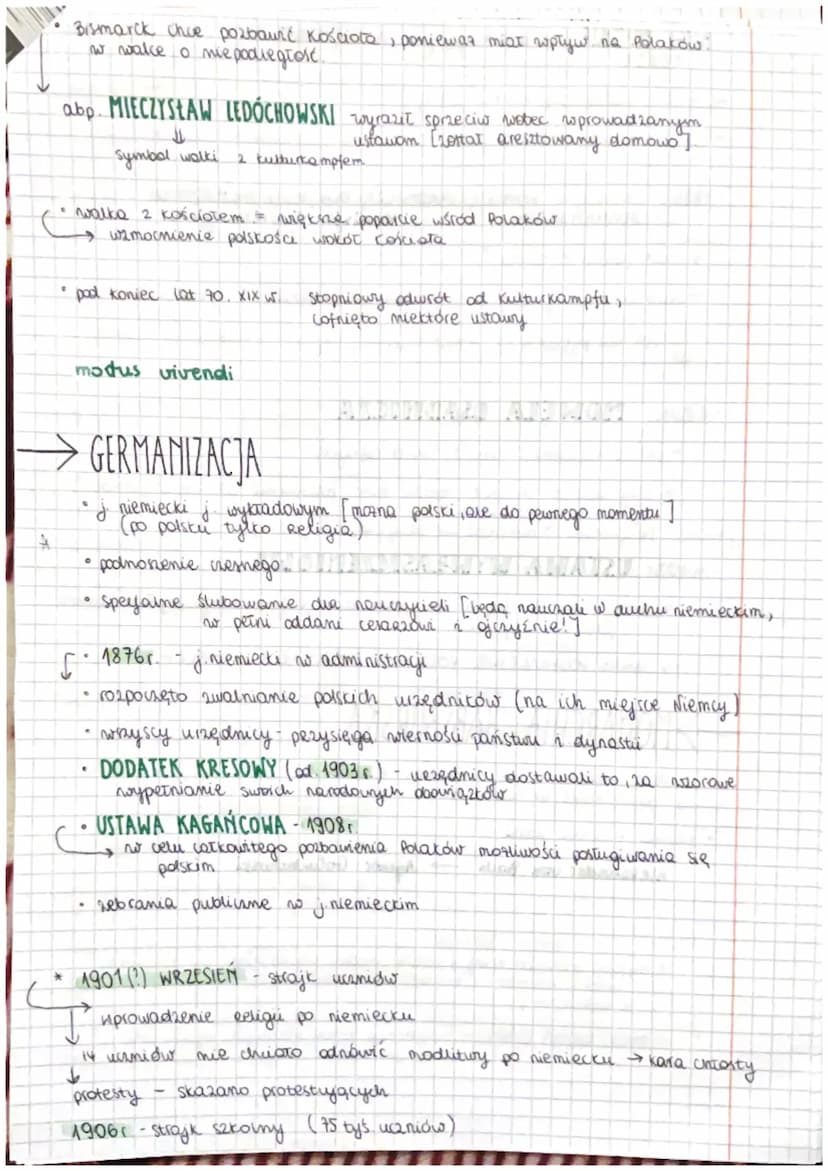 • Bismarck chce pozbawić Kościoła, ponieważ miał wpływ na Polaków
w walce o niepodległość.
abp. MIECZYSŁAW LEDÓCHOWSKI wyraził sprzeciw wobec wprowadzanym
ustawom [został aresztowany domowo]
symbol walki z kulturkampfem
• walka z kościołem = większe poparcie wśród Polaków
→ wzmocnienie polskości wokół kościoła
• pod koniec lat 70. XIX w. stopniowy odwrót od Kulturkampfu,
cofnięto niektóre ustawy
modus vivendi
→ GERMANIZACJA
• j. niemiecki j. wykładowym [można polski, ale do pewnego momentu]
(po polsku tylko Religia)
• podnoszenie czesnego
• specjalne ślubowanie dla nauczycieli [będą nauczali w duchu niemieckim,
w pełni oddani cesarzowi i ojczyźnie!]
• 1876r. - j. niemiecki w administracji
• rozpoczęto zwalnianie polskich urzędników (na ich miejsce Niemcy)
• wszyscy urzędnicy - przysięga wierności państwu i dynastii
• DODATEK KRESOWY (od. 1903r.) - urzędnicy dostawali to, za wzorowe
wypełnianie swoich narodowych obowiązków
• USTAWA KAGAŃCOWA - 1908r
→ w celu całkowitego pozbawienia Polaków możliwości posługiwania się
polskim
• zebrania publiczne w j. niemieckim
* 1901(!) WRZESIEŃ - strajk uczniów
wprowadzenie religii po niemiecku
14 uczniów nie chciało odmówić modlitwy po niemiecku → kara chłosty
protesty - skazano protestujących
1906r - strajk szkolny (75 tyś. uczniów)